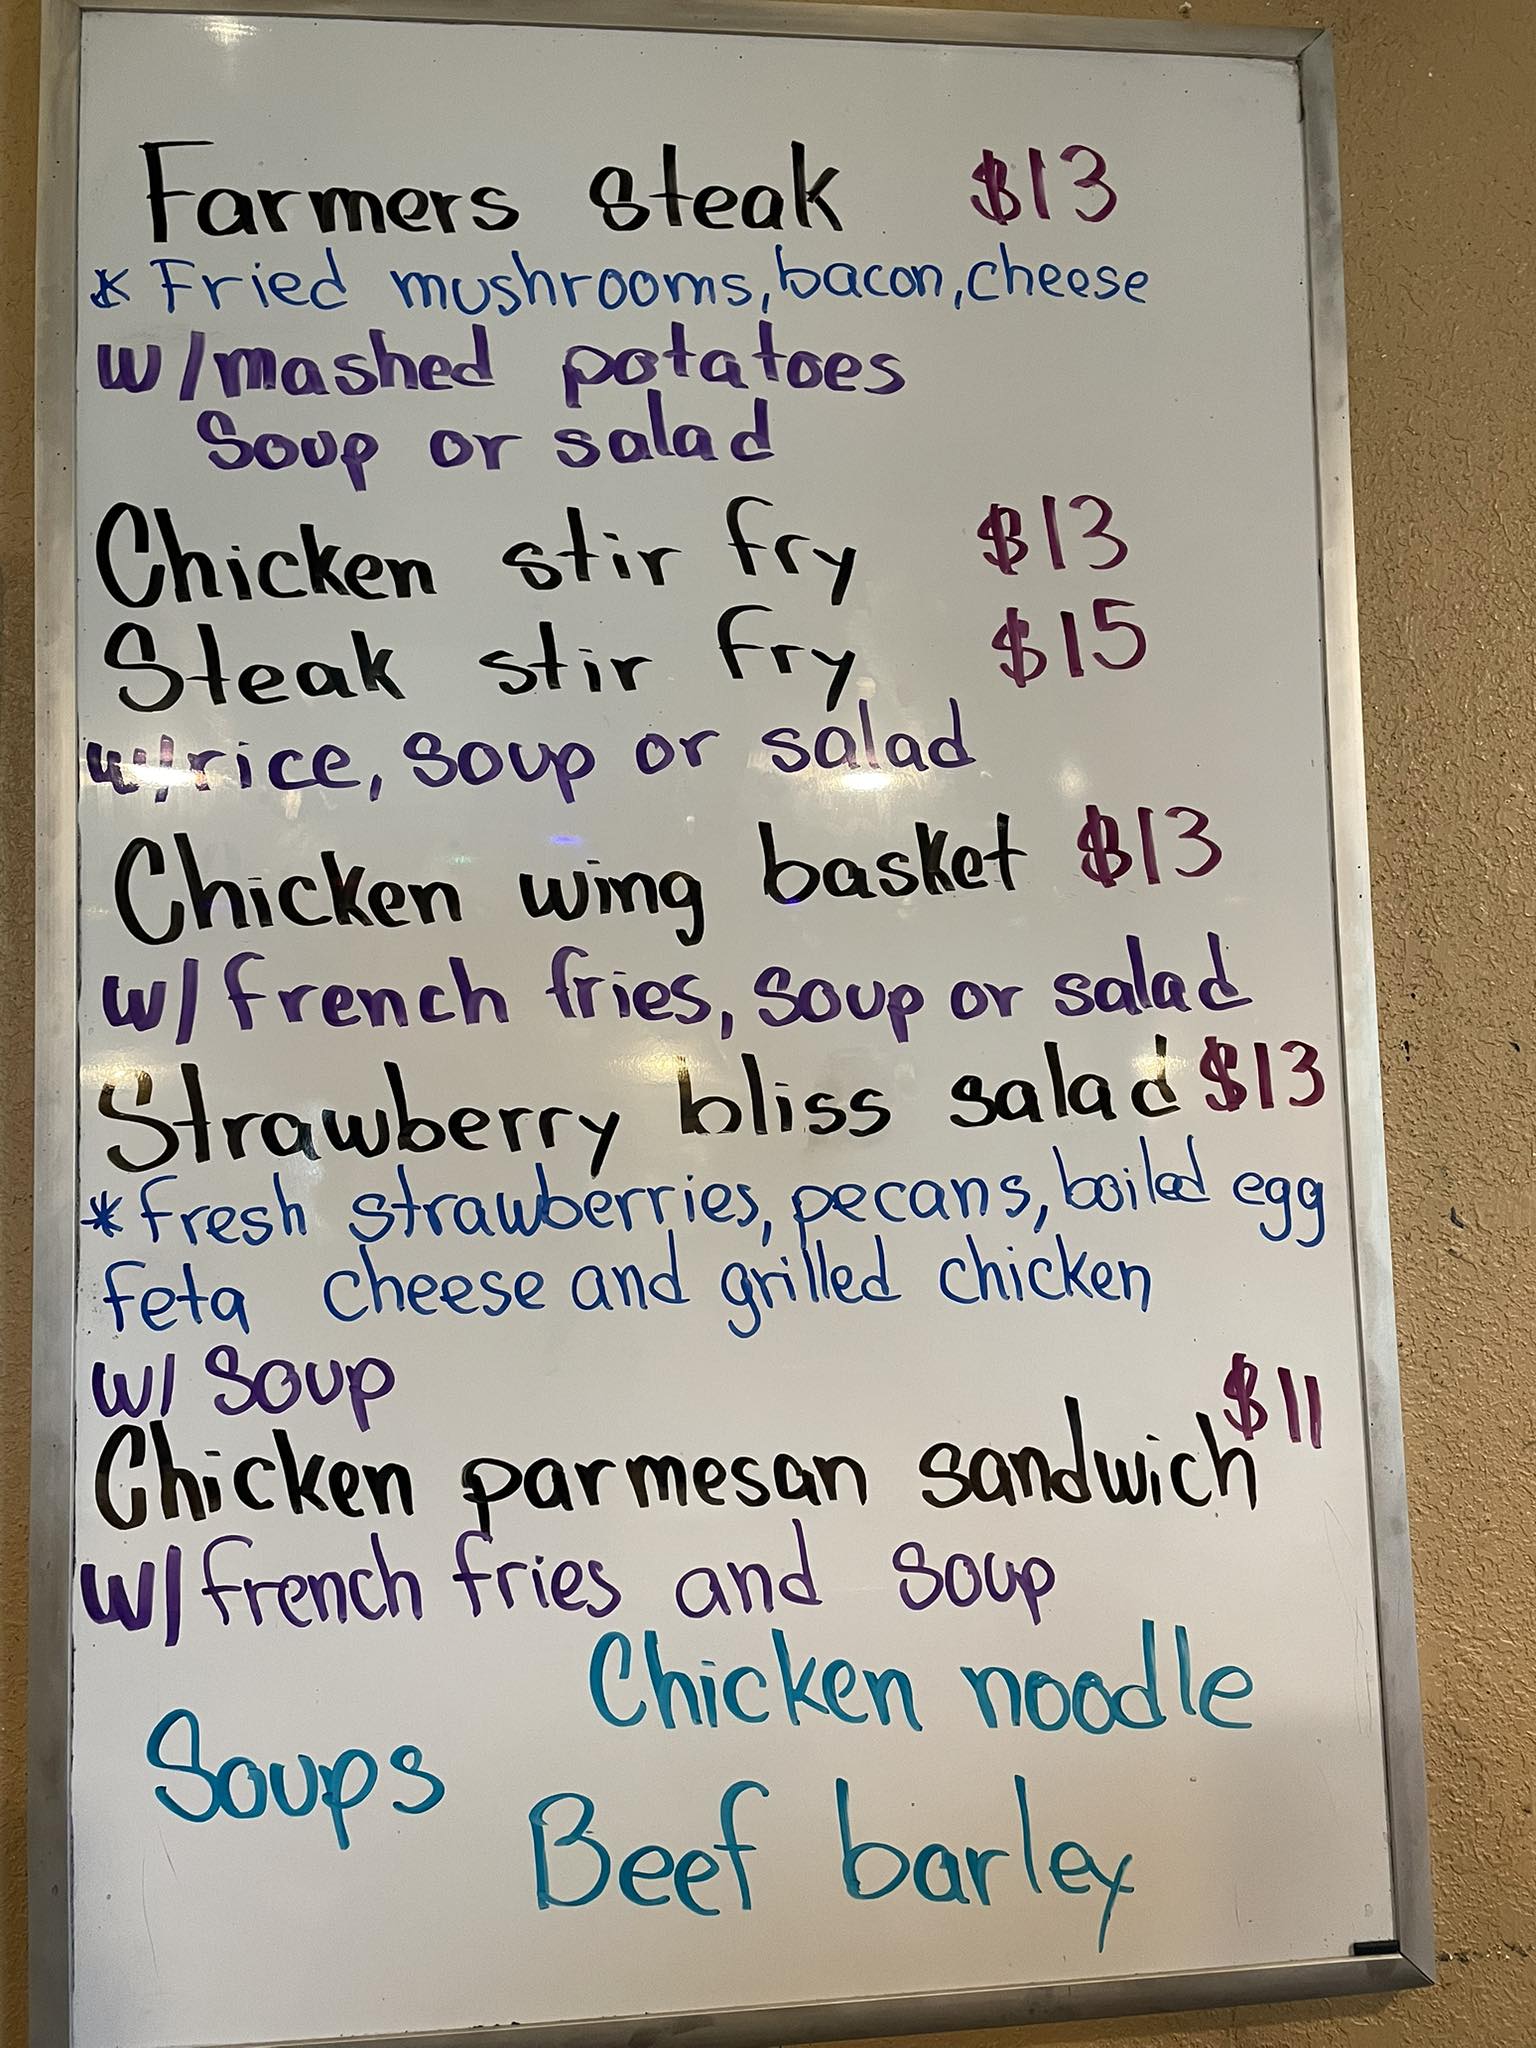 Farmers steak $13
* Fried mushrooms, bacon, cheese
w/mashed potatoes
Soup or salad
Chicken stir fry $13
Steak stir fry $15
w/rice, soup or salad
Chicken wing basket $13
w/french fries, soup or salad
Strawberry bliss salad $13
* fresh strawberries, pecans, boiled egg
feta cheese and grilled chicken
w/ soup
Chicken parmesan sandwich $11
w/french fries and soup
Chicken noodle
Soups
Beef barley